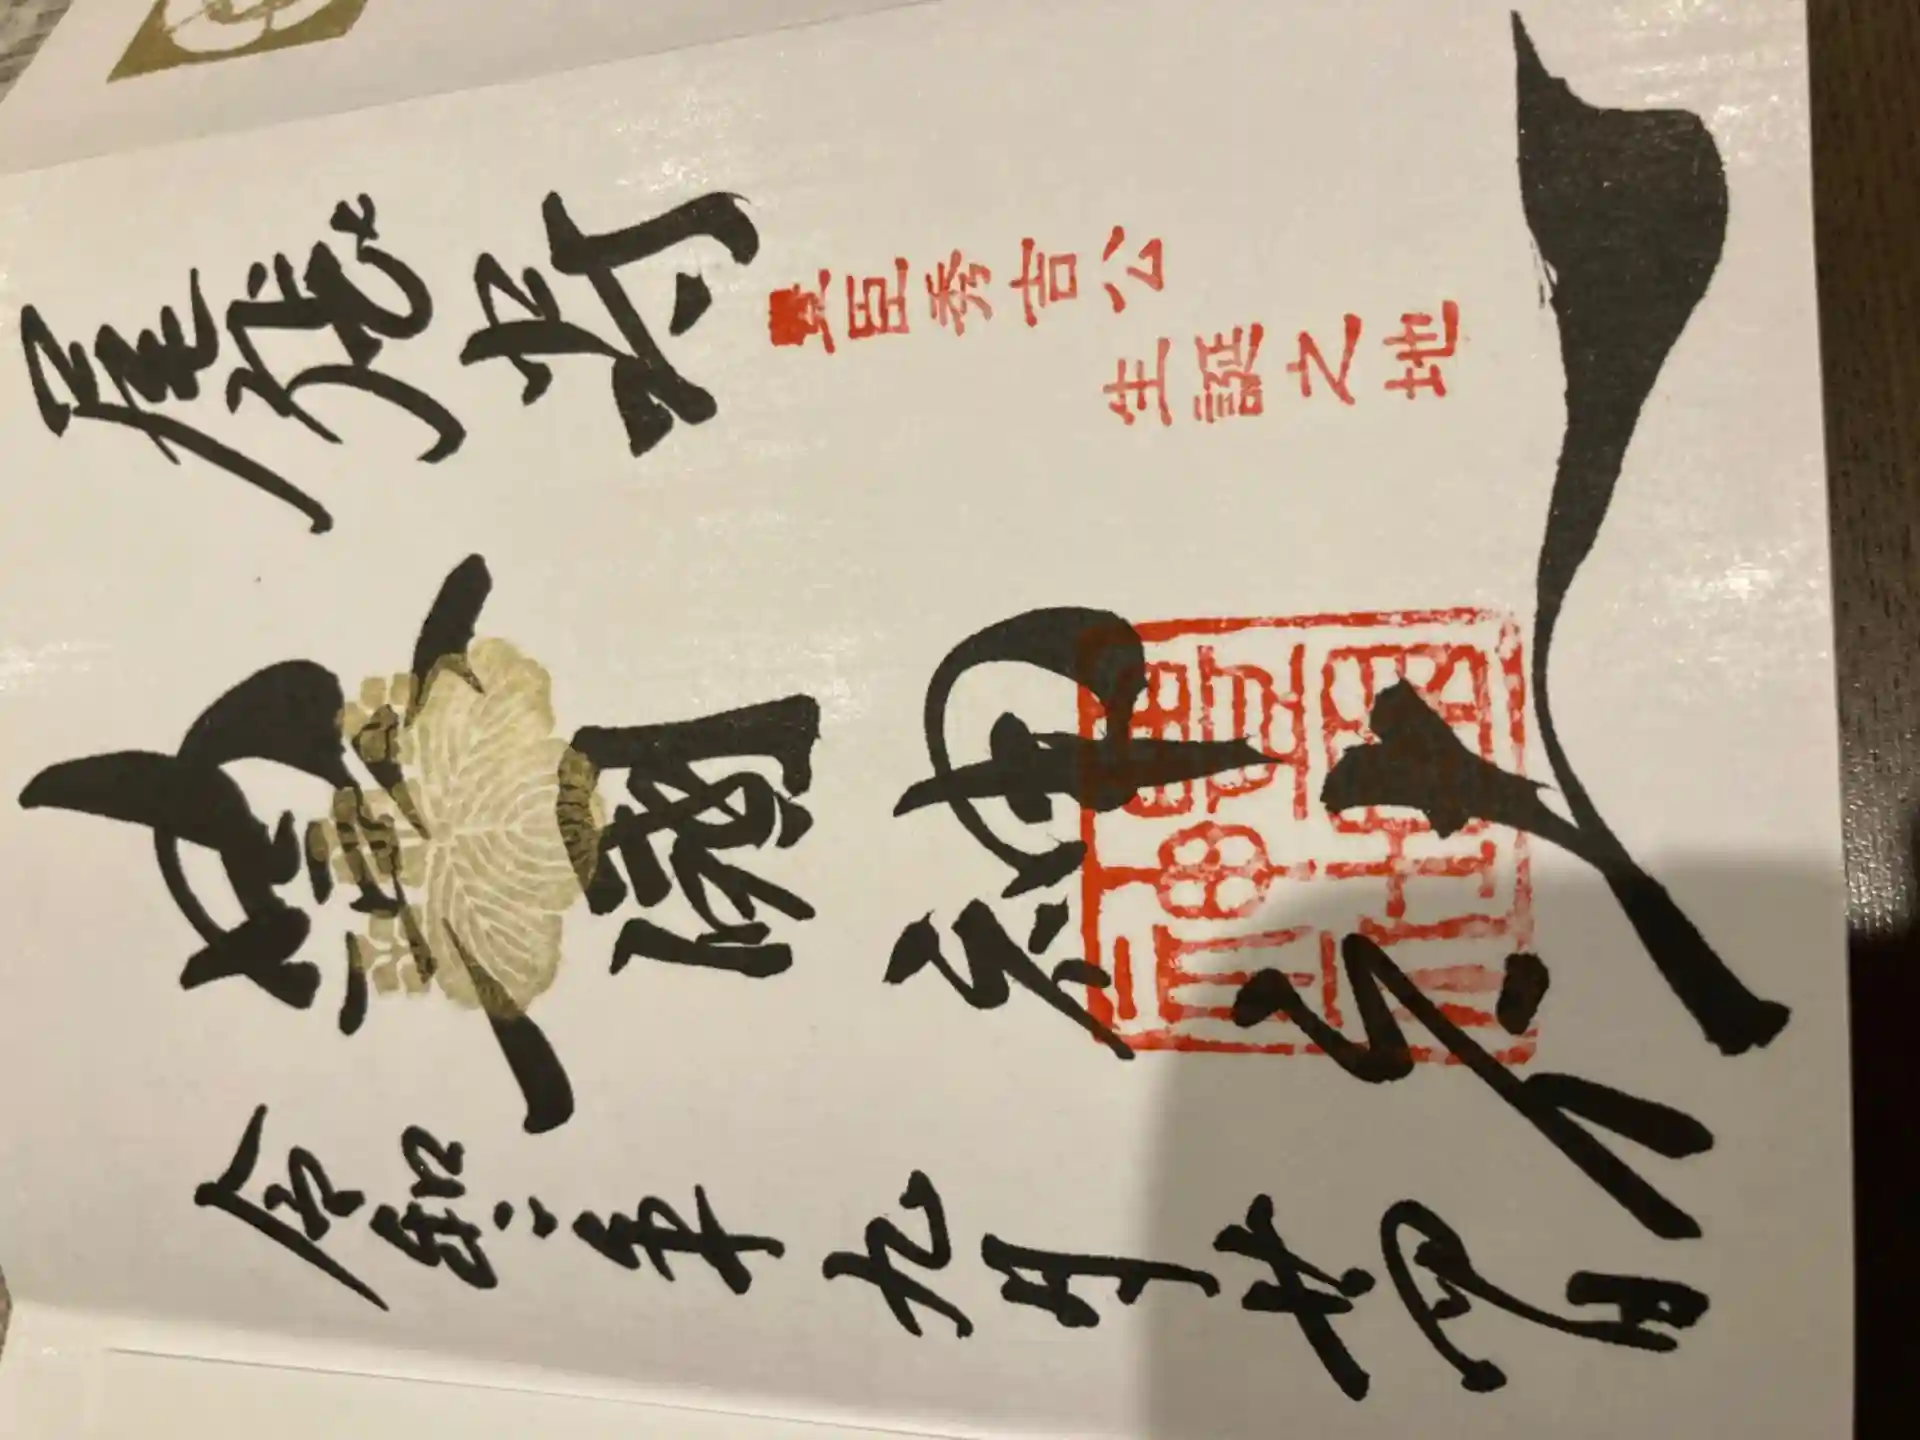 尾張
豊臣秀吉公
生誕之地
豊國神社
令和二年九月廿四日